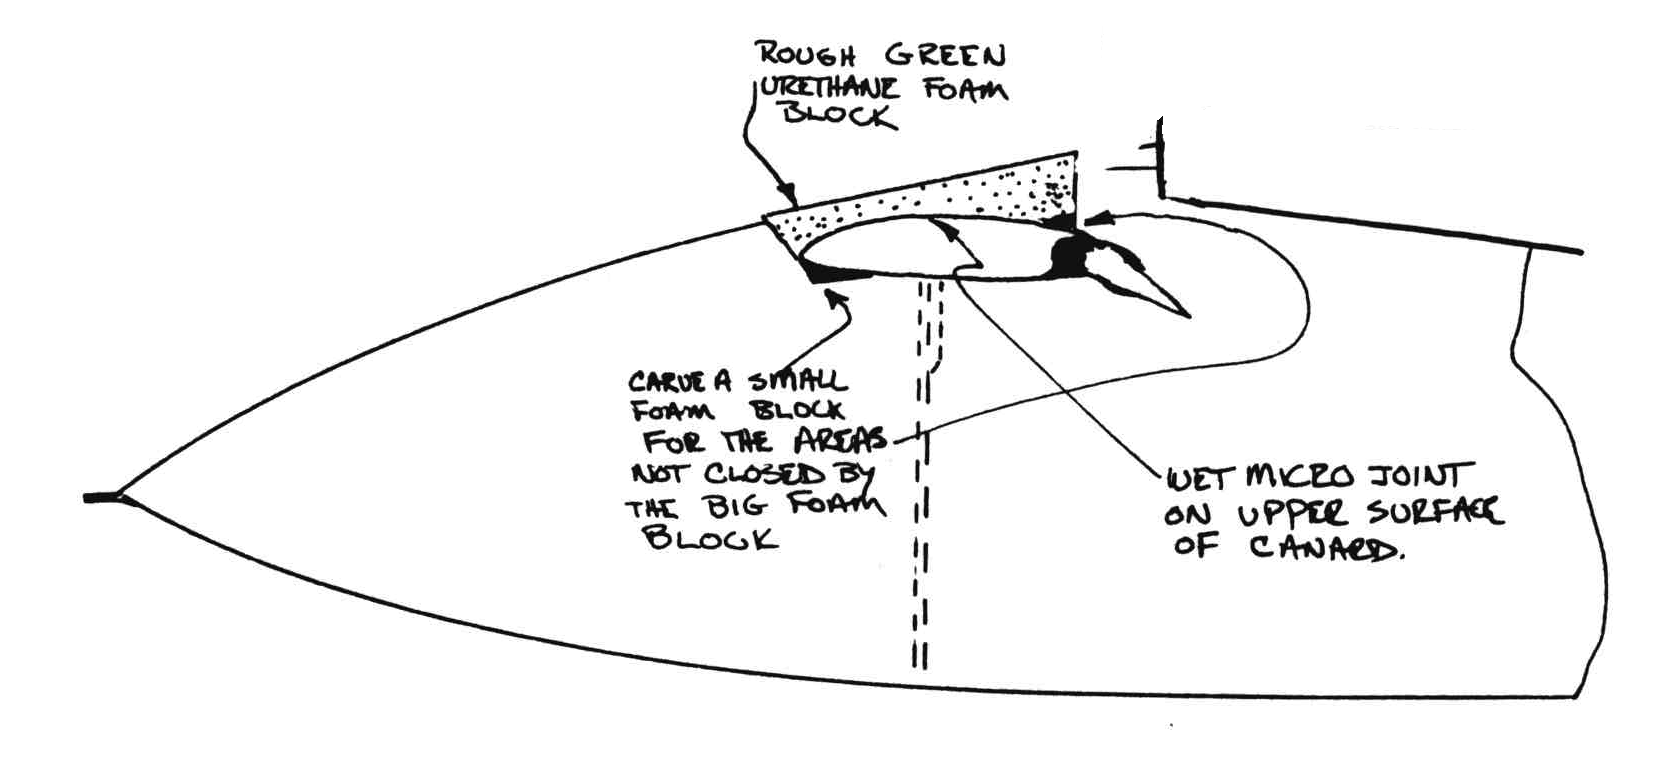 ROUGH GREEN
URETHANE FOAM
BLOCK
CARVE A SMALL
FOAM BLOCK
FOR THE AREAS
NOT CLOSED BY
THE BIG FOAM
BLOCK
WET MICRO JOINT
ON UPPER SURFACE
OF CANARD.